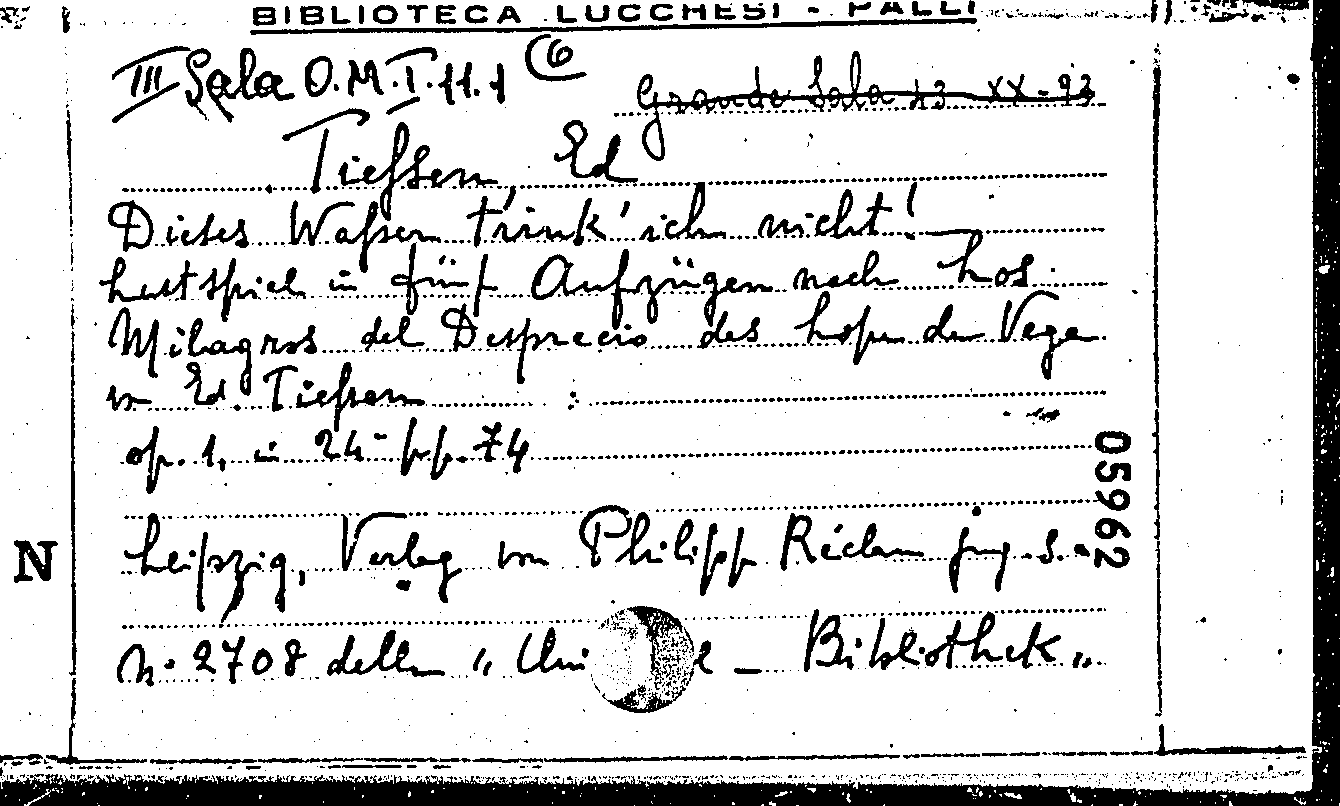 BIBLIOTECA LUCCHESI - PALLI
III Sala O.M.I.11.1 (6
Grande Sala 43-XX-93
Tiefsen, Ed
Dieses Wasser trink' ich nicht!
Lustspiel in fünf Aufzügen nach Los
Milagros del Desprecio des Lope de Vega
von Ed. Tiefsen
op. 1, in 24° pp. 74
Leipzig, Verlag von Philipp Reclam jun. s.a.
N. 2708 della "Uni l - Bibliothek"
05962
N